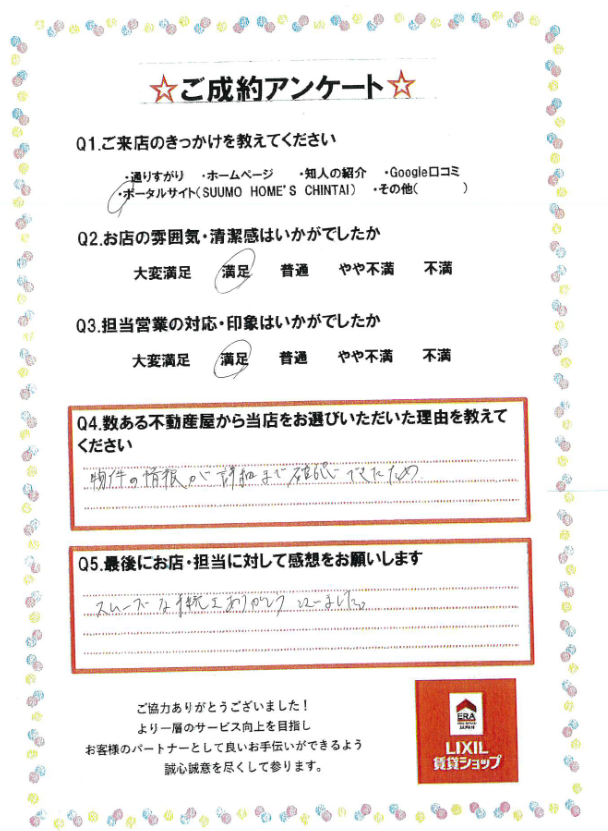 ☆ご成約アンケート☆
Q1.ご来店のきっかけを教えてください
・通りすがり ・ホームページ ・知人の紹介 ・Google口コミ
・ポータルサイト(SUUMO HOME'S CHINTAI) ・その他( )
Q2.お店の雰囲気・清潔感はいかがでしたか
大変満足 満足 普通 やや不満 不満
Q3.担当営業の対応・印象はいかがでしたか
大変満足 満足 普通 やや不満 不満
Q4.数ある不動産屋から当店をお選びいただいた理由を教えて
ください
物件の情報が詳細まで確認できたため
Q5.最後にお店・担当に対して感想をお願いします
スムーズな手続きありがとうございました。
ご協力ありがとうございました！
より一層のサービス向上を目指し
お客様のパートナーとして良いお手伝いができるよう
誠心誠意を尽くして参ります。
ERA
JAPAN
LIXIL
賃貸ショップ